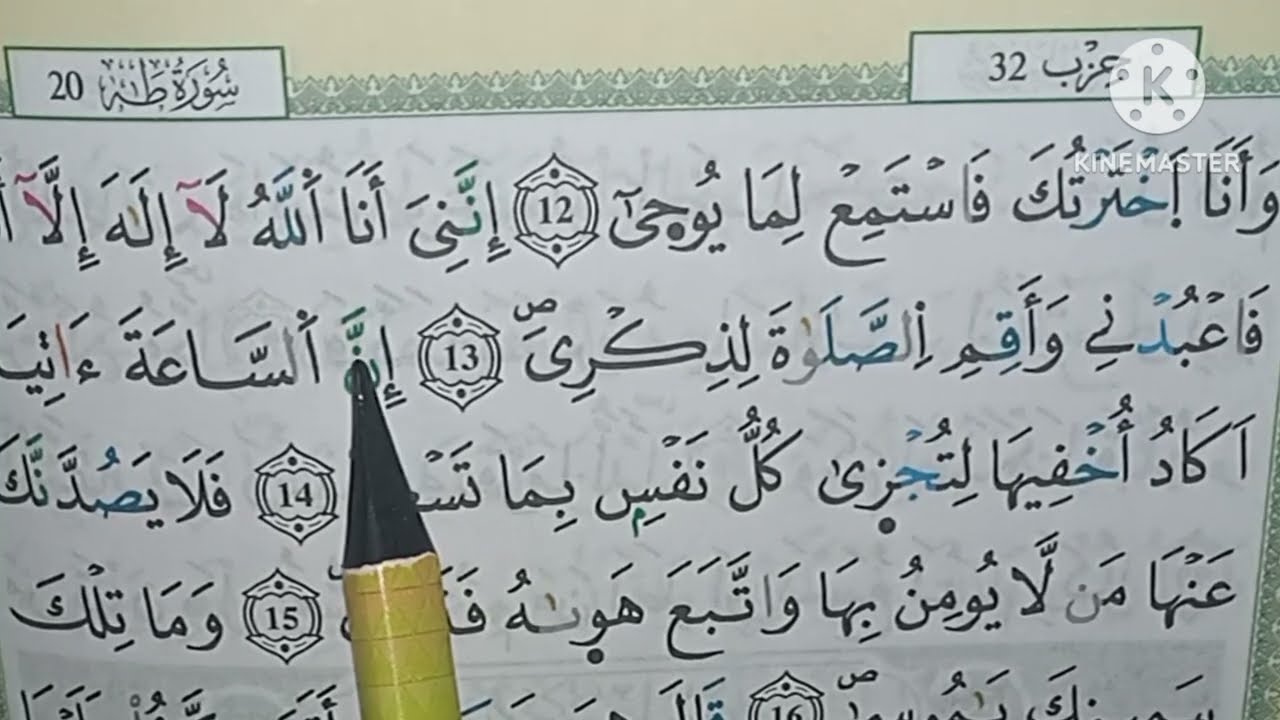 حِزْب 32
سُورَةُ طَهَ 20
KINEMASTER
وَأَنَا اَ۪خْتَرْتُكَ فَاسْتَمِعْ لِمَا يُوح۪ىٰٓ 12 إِنَّنِيَ أَنَا اَ۬للَّهُ لَآ إِلَٰهَ إِلَّآ
فَاعْبُدْنِے وَأَقِمِ اِ۬لصَّلَوٰةَ لِذِكْرِيَۖ 13 إِنَّ اَ۬لسَّاعَةَ
اَكَادُ أُخْفِيهَا لِتُجْز۪ىٰ كُلُّ نَفْسِۢ بِمَا 14 فَلَا يَصُدَّنَّكَ
عَنْهَا مَن لَّا يُومِنُ بِهَا وَاتَّبَعَ هَو۪ىٰهُ 15 وَمَا تِلْكَ
16 قَالَ